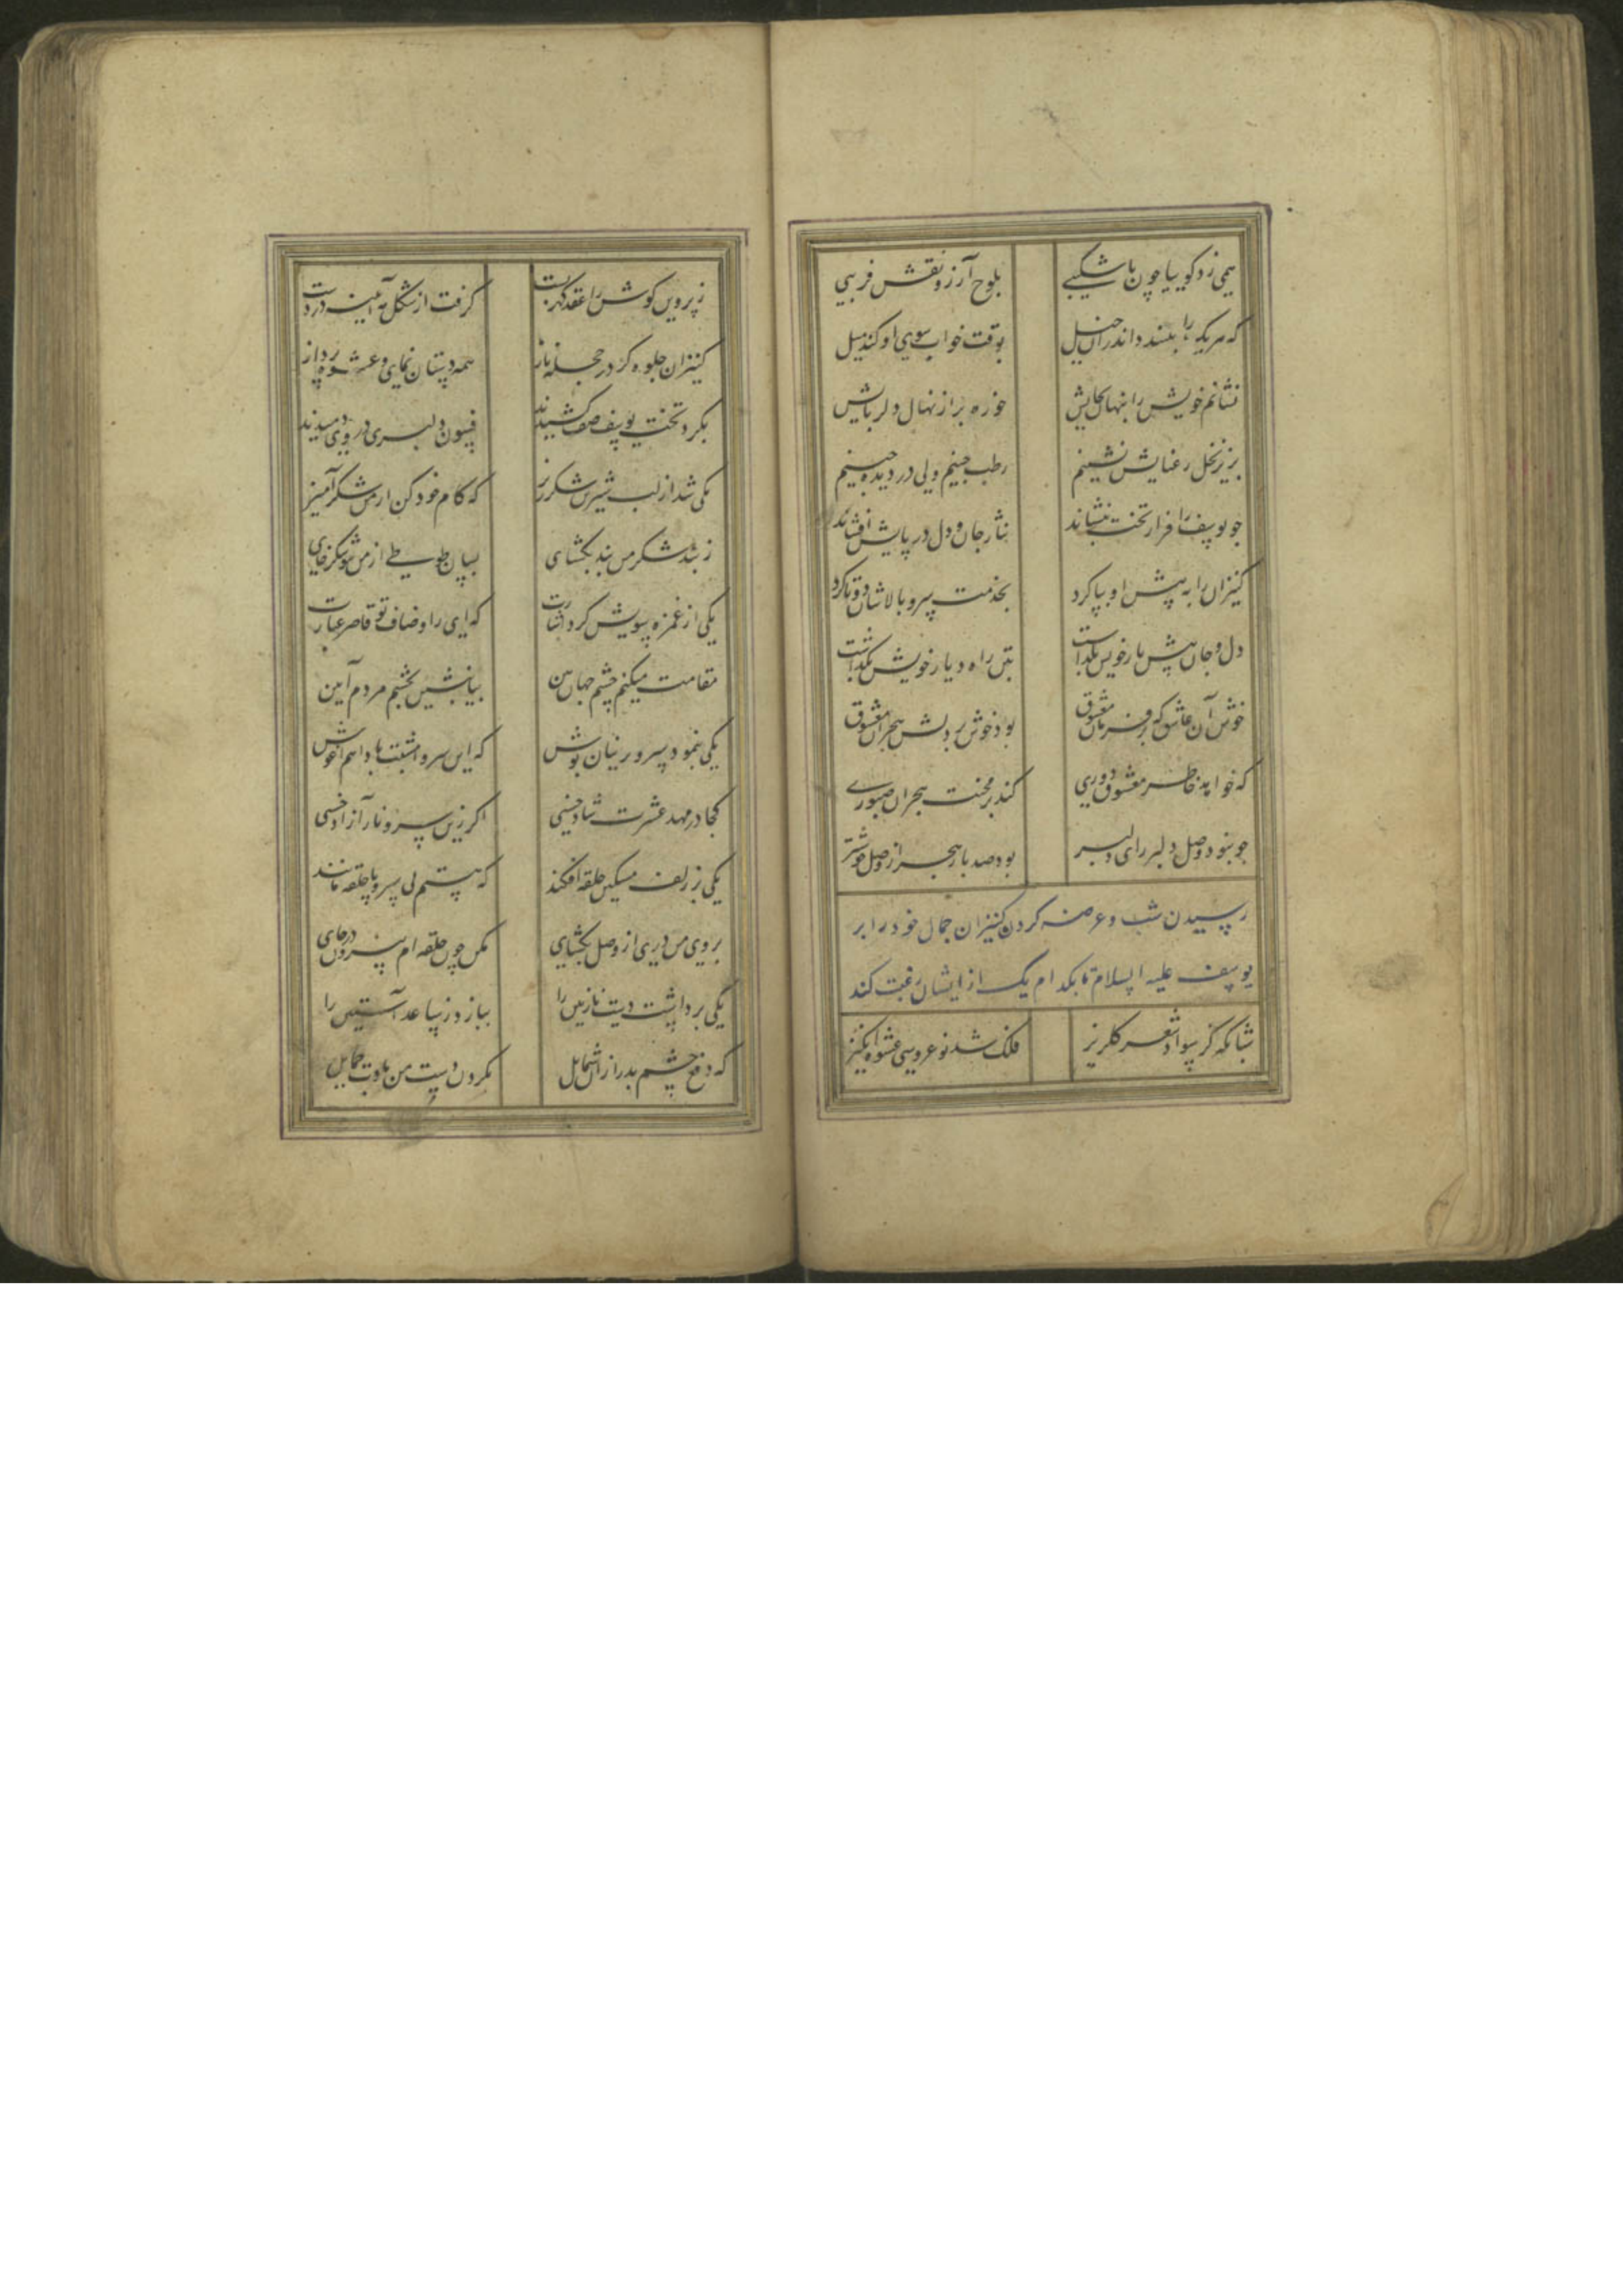 همی زد کوییا چون ناشکیبی بلوح آرزو نقش فریبی
که هر یک را پسند داند ران خیل بوقت خواب سوی او کند میل
نشانم خویش را پنهان بجایش خورم بر از نهال دلربایش
بزیر نخل رعنایش نشینم رطب چینم ولی دزدیده چینم
چو یوسف را فراز تخت بنشاند نثار جان و دل در پایش افشاند
کنیزان را به پیش او بپا کرد بخدمت سرو بالاشان دوتا کرد
دل و جان پیش یار خویش بگذاشت بتن راه دیار خویش بگذاشت
خوش آن عاشق که بر فرمان معشوق بود خوش بر دلش هجران معشوق
که خواهد خاطر معشوق دوری کند بر محنت هجران صبوری
چو نبود وصل دلبر رای دلبر بود صد بار هجر از وصل خوشتر
رسیدن شب و عرضه کردن کنیزان جمال خود را بر
یوسف علیه السلام تا بکدام یک از ایشان رغبت کند
شبانکه کز سواد شعر کلریز فلک شد نو عروسی عشوه انکیز
ز پروین کوش را عقد کهر بست کرفت از شکل مه آیینه در دست
کنیزان جلوه کر در حجله ناز همه دستان نمای و عشوه پرداز
بکرد تخت یوسف صف کشیدند فسون دلبری در وی دمیدند
یکی شد از لب شیرین شکرریز که کام خود کن از من شکرآمیز
ز تنک شکر من بند بکشای بسان طوطی از من شو شکرخای
یکی از غمزه سویش کرد اشارت که ای ز اوصاف تو قاصر عبارت
مقامت میکنم چشم جهان بین بیا بنشین بچشم مردم آیین
یکی بنمود سرو پرنیان پوش که این سرو امشبت بادا هم آغوش
کجا در مهد عشرت شاد خسبی اکر زین سرو ناز آزاد خسبی
یکی ز زلف مشکین حلقه افکند که هستم بی سر و پا حلقه مانند
بروی من دری از وصل بکشای مکن چون حلقه ام بیرون در جای
یکی برداشت دست نازنین را ببازد ز ساعد آستین را
که دفع چشم بد را زان شمایل بکردن دست من بادت حمایل